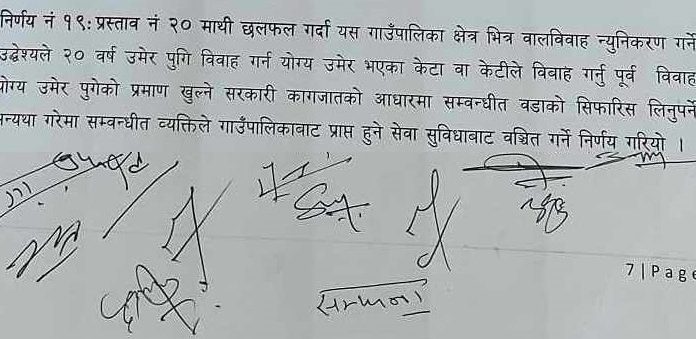 निर्णय नं १९: प्रस्ताव नं २० माथी छलफल गर्दा यस गाउँपालिका क्षेत्र भित्र वालविवाह न्युनिकरण गर्ने
उद्धेश्यले २० वर्ष उमेर पुगि विवाह गर्न योग्य उमेर भएका केटा वा केटीले विबाह गर्नु पूर्व विवाह
योग्य उमेर पुगेको प्रमाण खुल्ने सरकारी कागजातको आधारमा सम्वन्धीत वडाको सिफारिस लिनुपर्ने
अन्यथा गरेमा सम्वन्धीत व्यक्तिले गाउँपालिकाबाट प्राप्त हुने सेवा सुविधाबाट वञ्चित गर्ने निर्णय गरियो ।
7 | Page